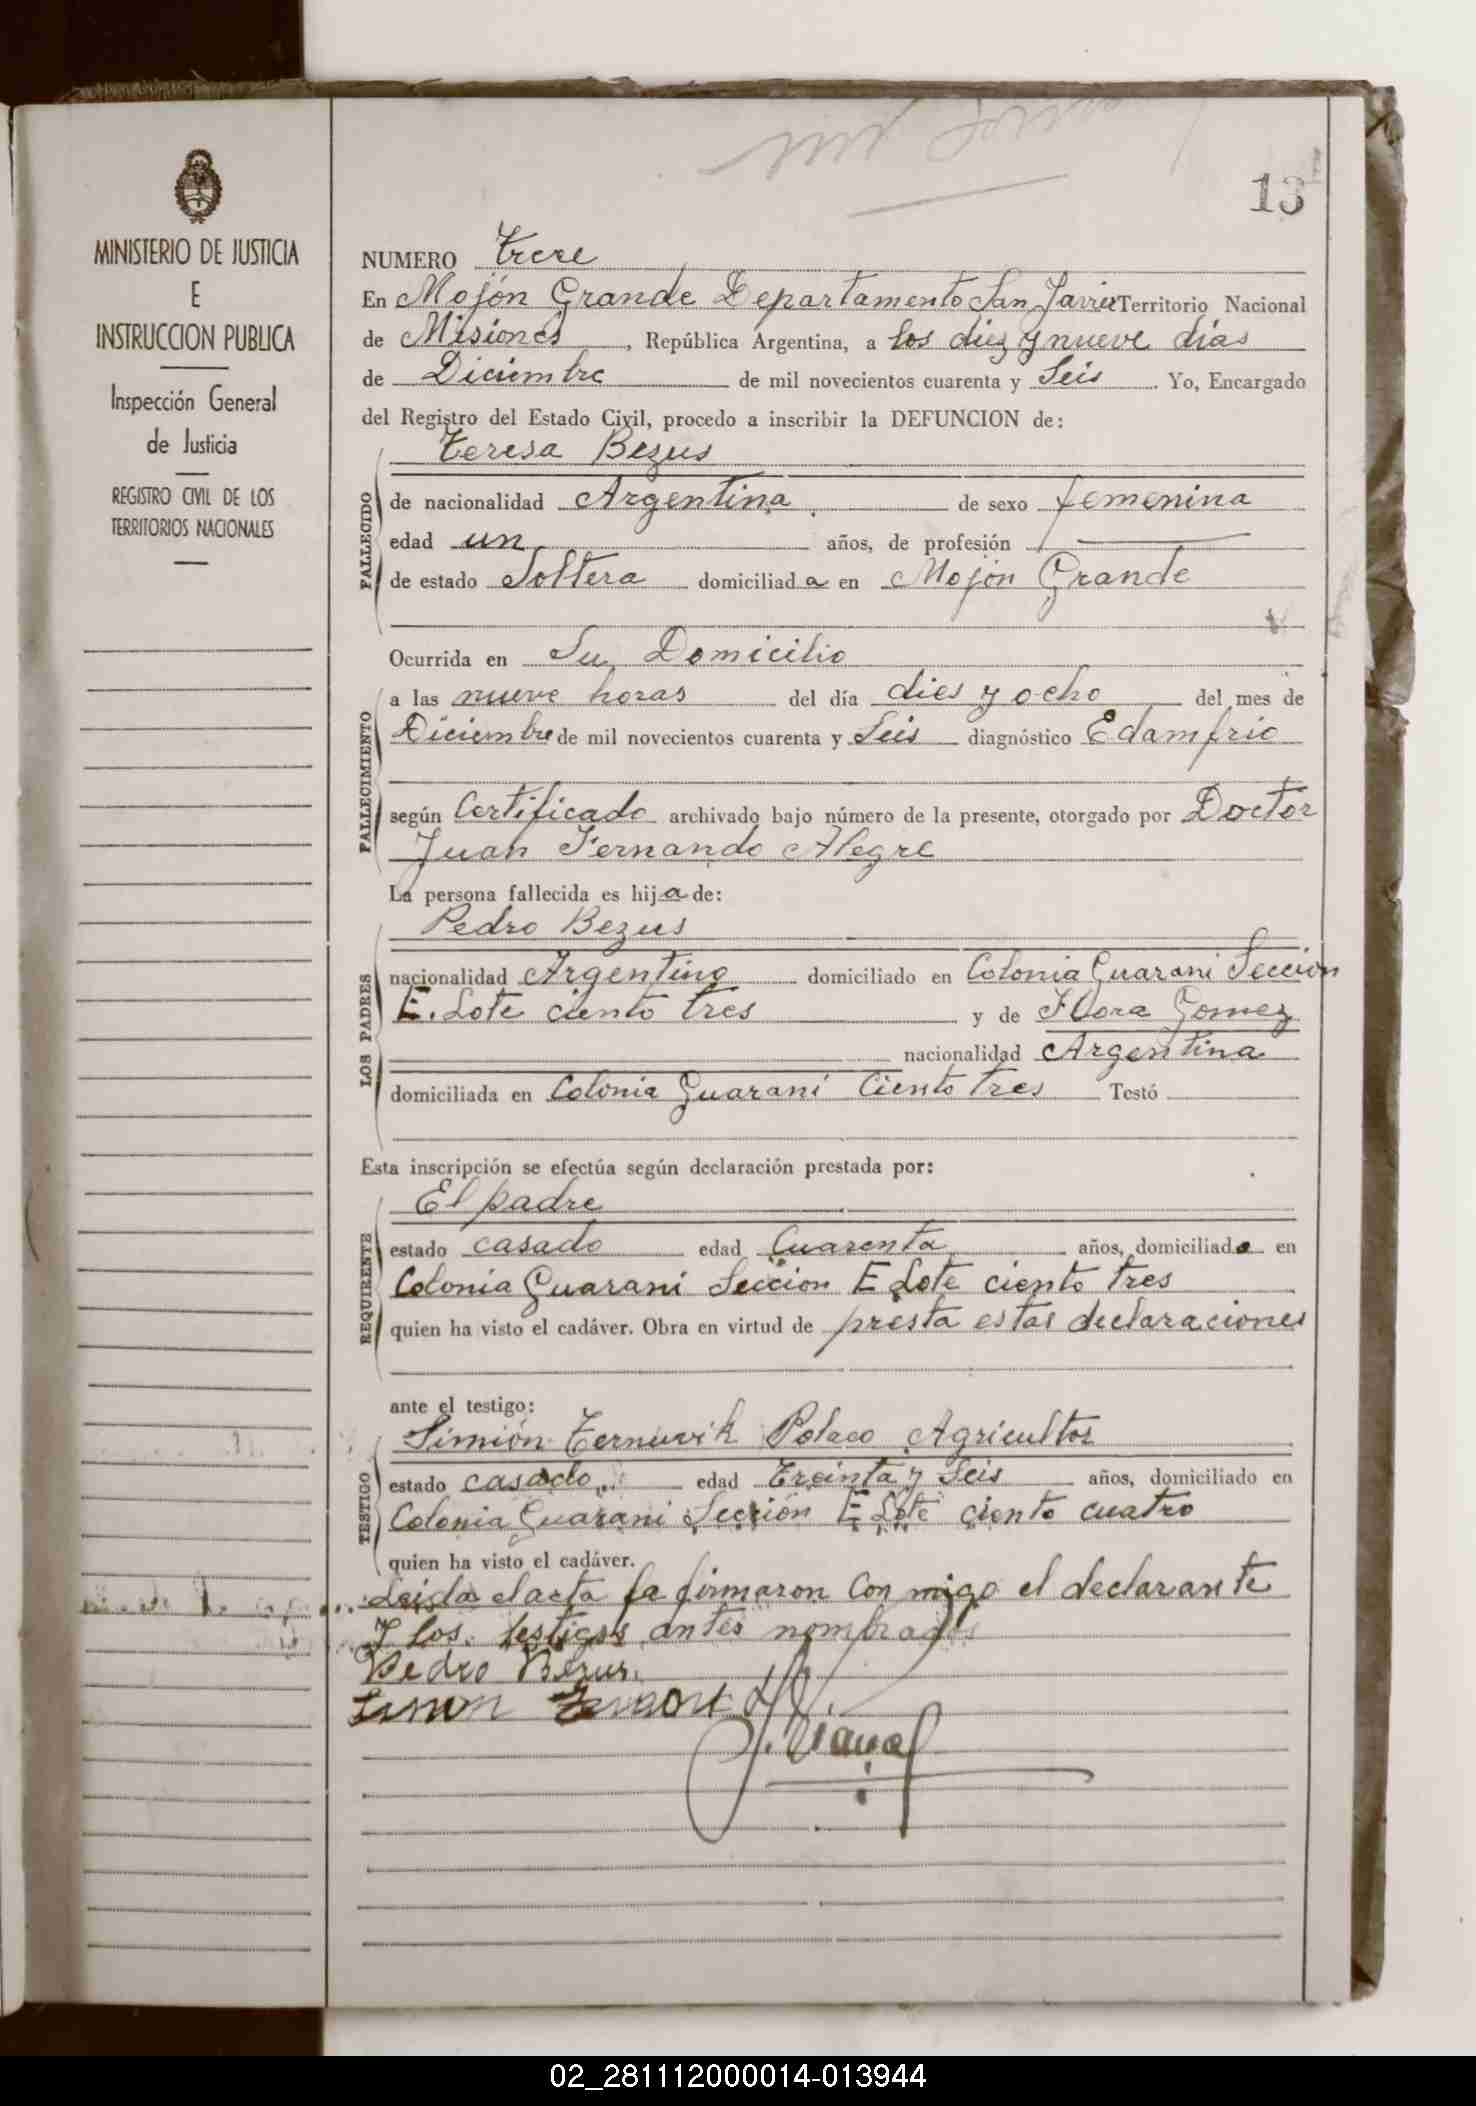 13
MINISTERIO DE JUSTICIA
E
INSTRUCCION PUBLICA
Inspección General
de Justicia
REGISTRO CIVIL DE LOS
TERRITORIOS NACIONALES
NUMERO Trece
En Mojón Grande Departamento San Javier Territorio Nacional
de Misiones, República Argentina, a los diez y nueve días
de Diciembre de mil novecientos cuarenta y Seis. Yo, Encargado
del Registro del Estado Civil, procedo a inscribir la DEFUNCION de:
Teresa Bezus
FALLECIDO
de nacionalidad Argentina de sexo femenina
edad un años, de profesión
de estado Soltera domiciliada en Mojón Grande
Ocurrida en Su Domicilio
FALLECIMIENTO
a las nueve horas del día dies y ocho del mes de
Diciembre de mil novecientos cuarenta y Seis diagnóstico Edamfrio
según Certificado archivado bajo número de la presente, otorgado por Doctor
Juan Fernando Alegre
La persona fallecida es hija de:
Pedro Bezus
LOS PADRES
nacionalidad Argentino domiciliado en Colonia Guarani Seccion
E. Lote ciento tres y de Flora Gomez
nacionalidad Argentina
domiciliada en Colonia Guarani Ciento tres Testó
Esta inscripción se efectúa según declaración prestada por:
El padre
REQUIRENTE
estado casado edad Cuarenta años, domiciliado en
Colonia Guarani Seccion E Lote ciento tres
quien ha visto el cadáver. Obra en virtud de presta estas declaraciones
ante el testigo:
Simión Ternuvik Polaco Agricultor
TESTIGO
estado casado edad Treinta y Seis años, domiciliado en
Colonia Guarani Sección E Lote ciento cuatro
quien ha visto el cadáver.
Leida el acta la firmaron Con migo el declarante
y los testigos antes nombrados
Pedro Bezus.
02_281112000014-013944